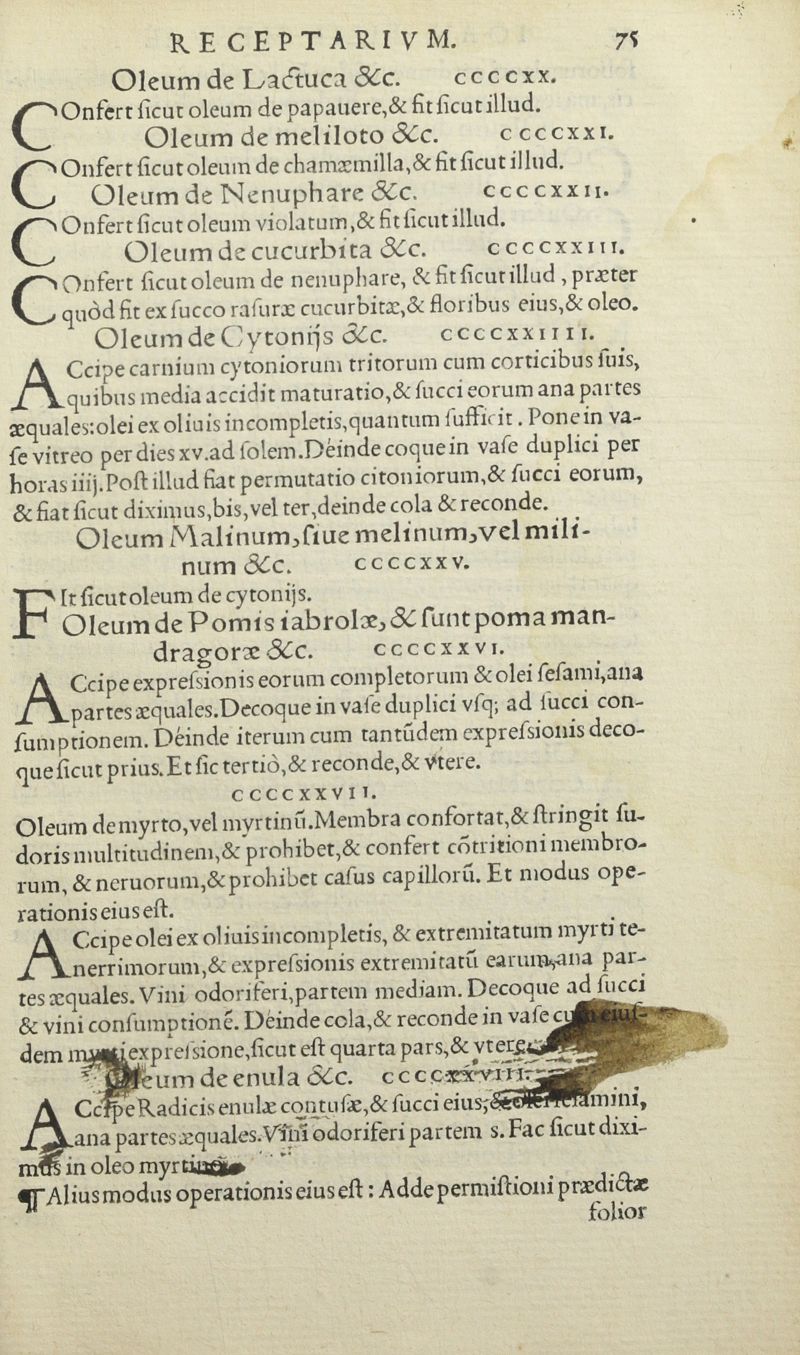 RECEPTARIVM. 75
Oleum de Lactuca &c. ccccxx.
COnfert ſicut oleum de papauere,& fit ſicut illud.
Oleum de meliloto &c. ccccxxi.
COnfert ſicut oleum de chamæmilla,& fit ſicut illud.
Oleum de Nenuphare &c. ccccxxii.
COnfert ſicut oleum violatum,& fit ſicut illud.
Oleum de cucurbita &c. ccccxxiii.
COnfert ſicut oleum de nenuphare, & fit ſicut illud , præter
quòd fit ex ſucco raſuræ cucurbitæ,& floribus eius,& oleo.
Oleum de Cytonijs &c. ccccxxiiii.
ACcipe carnium cytoniorum tritorum cum corticibus ſuis,
quibus media accidit maturatio,& ſucci eorum ana partes
æquales:olei ex oliuis incompletis,quantum ſufficit . Pone in va-
ſe vitreo per dies xv.ad ſolem.Déinde coque in vaſe duplici per
horas iiij.Poſt illud fiat permutatio citoniorum,& ſucci eorum,
& fiat ſicut diximus,bis,vel ter,deinde cola & reconde.
Oleum Malinum,ſiue melinum,vel mili-
num &c. ccccxxv.
FIt ſicut oleum de cytonijs.
Oleum de Pomis iabrolæ,& ſunt poma man-
dragoræ &c. ccccxxvi.
ACcipe expreſsionis eorum completorum & olei ſeſami,ana
partes æquales.Decoque in vaſe duplici vſq; ad ſucci con-
ſumptionem. Déinde iterum cum tantũdem expreſsionis deco-
que ſicut prius. Et ſic tertiò,& reconde,& vtere.
ccccxxvii.
Oleum de myrto,vel myrtinũ.Membra confortat,& ſtringit ſu-
doris multitudinem,& prohibet,& confert cõtritioni membro-
rum, & neruorum,& prohibet caſus capillorũ. Et modus ope-
rationis eius eſt.
ACcipe olei ex oliuis incompletis, & extremitatum myrti te-
nerrimorum,& expreſsionis extremitatũ earum,ana par-
tes æquales. Vini odoriferi,partem mediam. Decoque ad ſucci
& vini conſumptionẽ. Déinde cola,& reconde in vaſe cum eiuſ-
dem myrti expreſsione,ſicut eſt quarta pars,& vtere.
Oleum de enula &c. ccccxxviii.
ACcipe Radicis enulæ contuſæ,& ſucci eius,& olei ſeſamini,
ana partes æquales.Vini odoriferi partem s. Fac ſicut dixi-
mus in oleo myrtino.
¶ Alius modus operationis eius eſt : Adde permiſtioni prædictæ
folior